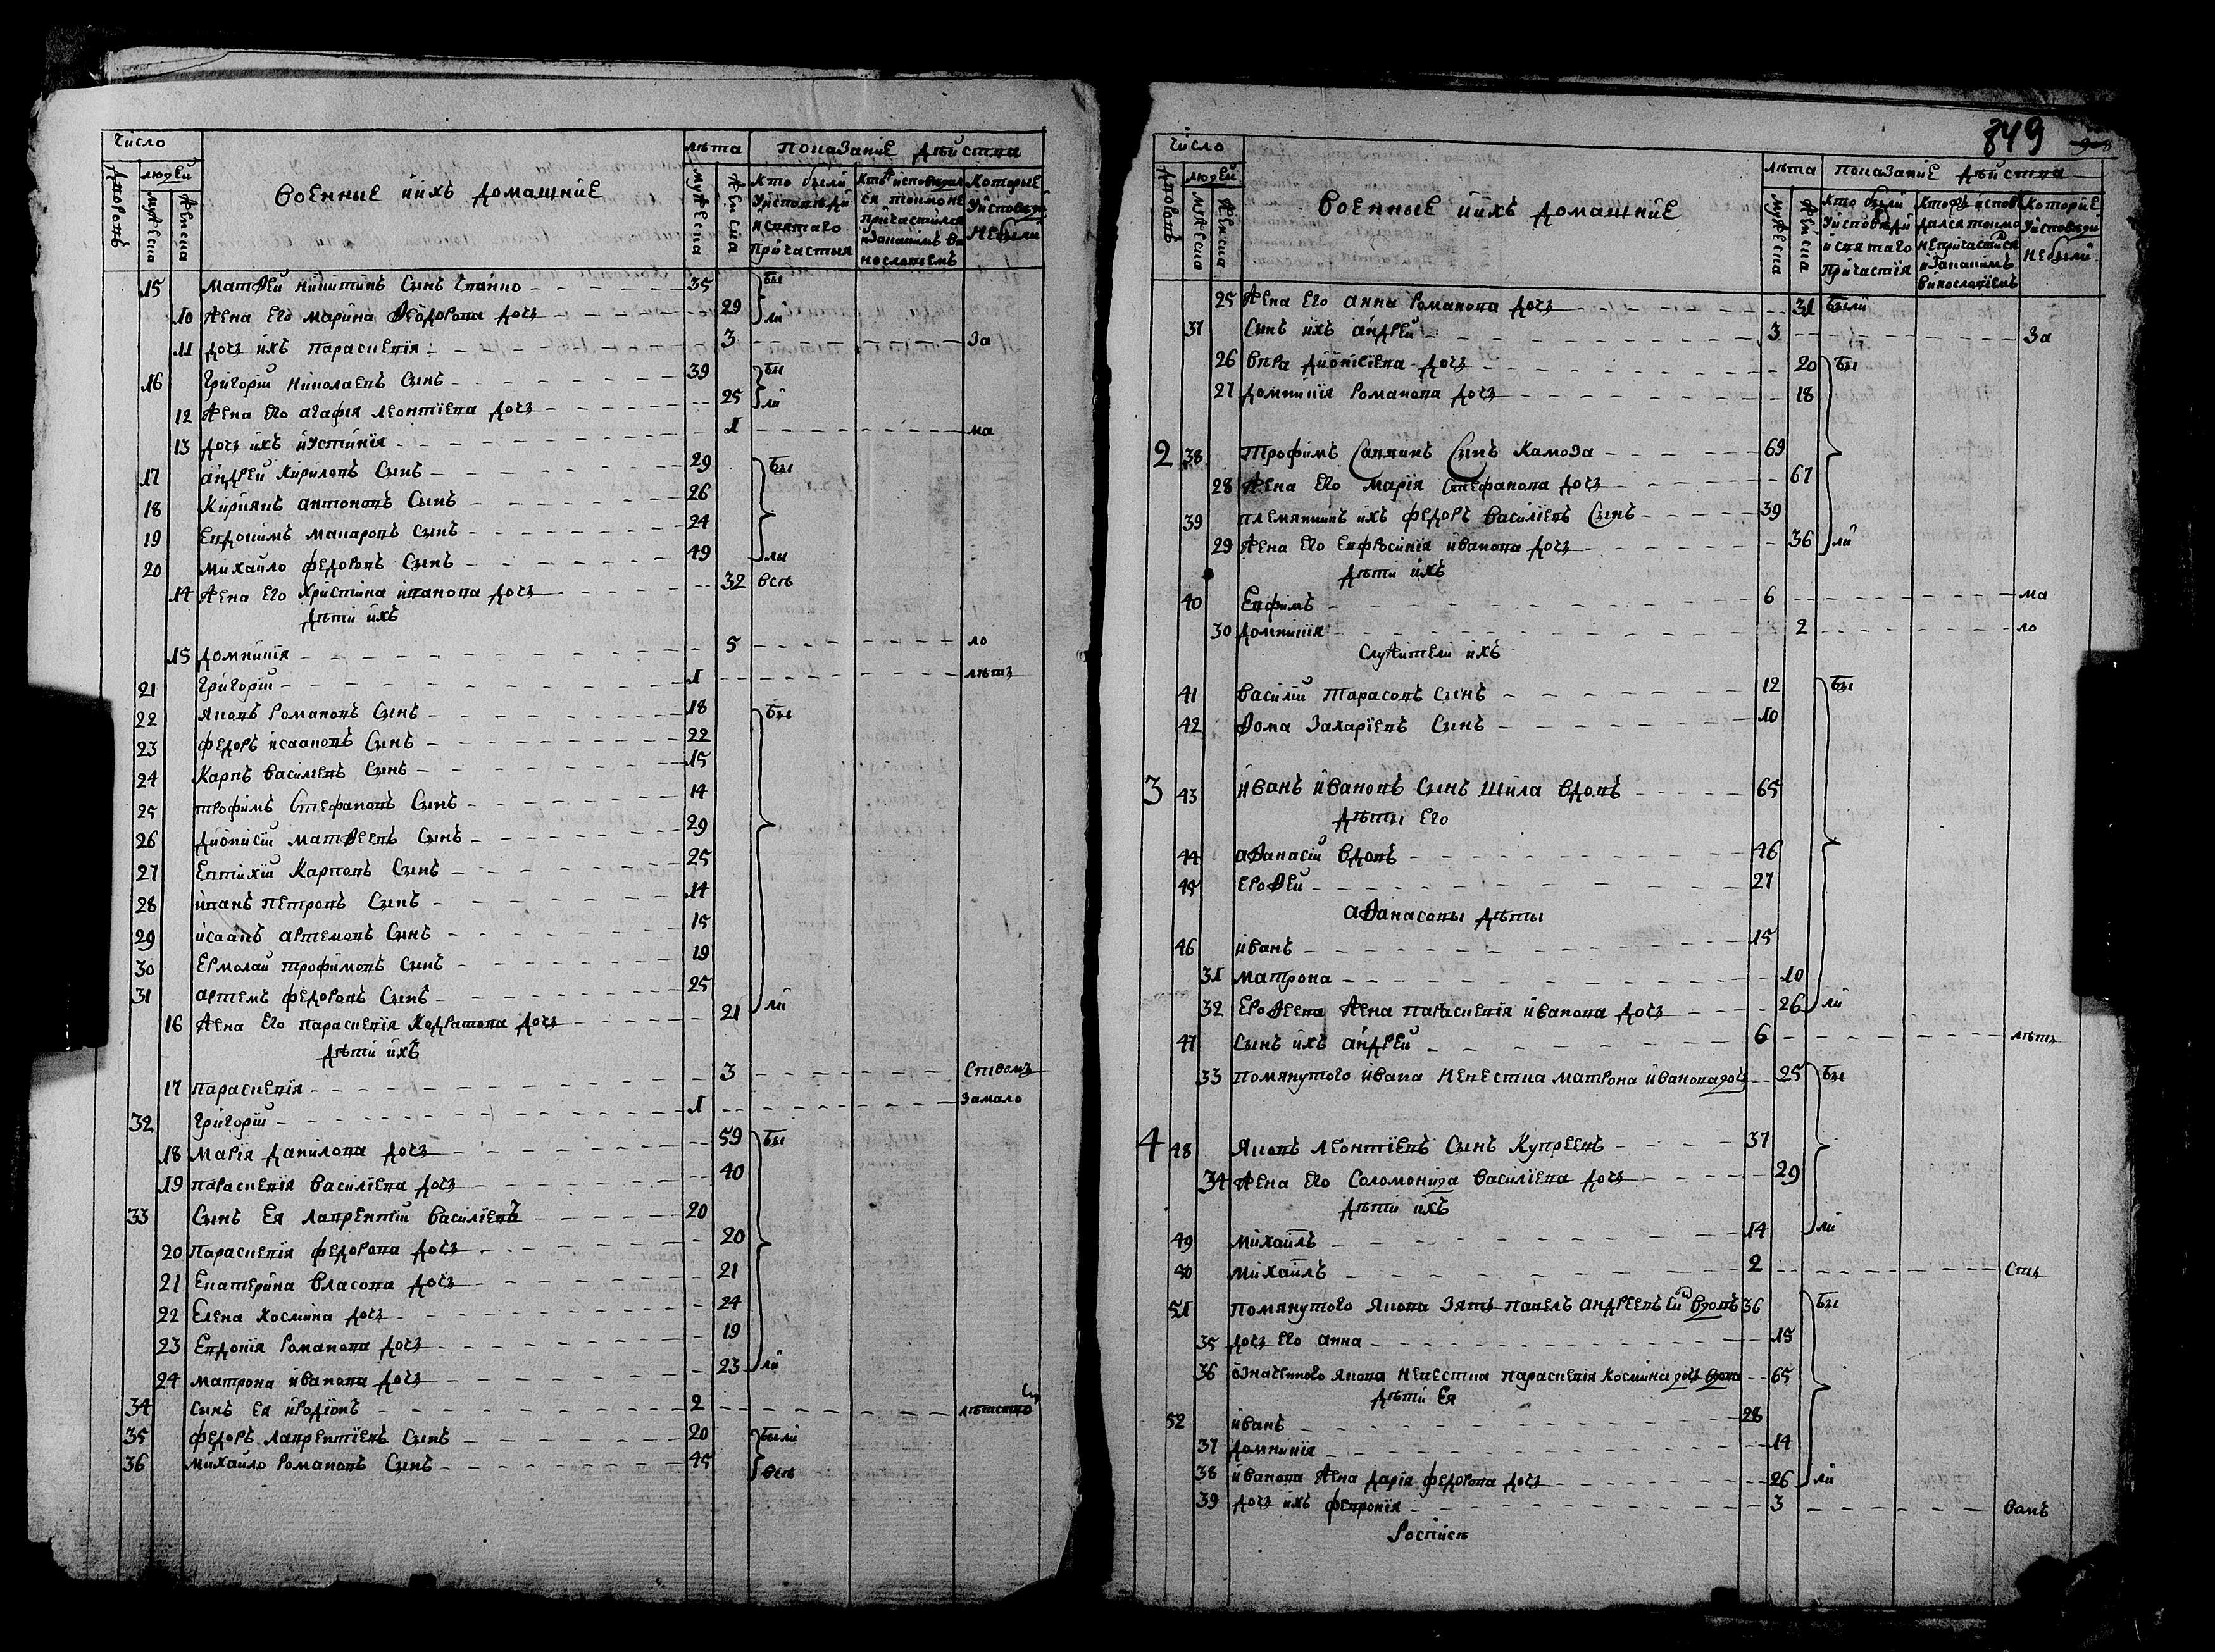 Число
лѣта
Показаніе дѣйства
дворовъ
людей
мужеска
женска
Военные и ихъ домашние
мужеска
женска
Кто были
У исповѣди
и святаго
Причастыя
Которые
У исповѣди
Не были
15 Матѳей Никитинъ Сынъ 35 Бы
10 Жена Его Марина Ѳеодорова дочъ 29 ли
11 дочъ ихъ Параскевія 3 За
16 Григорій Николаевъ Сынъ 39 Бы
12 Жена Его агафія Леонтіева дочъ 25 ли
13 дочъ ихъ иУстинія 1 ма
17 андрей Кириловъ Сынъ 29 Бы
18 Киріянъ антоновъ Сынъ 26
19 Евдокимъ Макаровъ Сынъ 24
20 Михайло федоровъ Сынъ 49 ли
14 Жена Его Христина иванова дочъ 32 Всѣ
дѣти ихъ
15 Домникія 5 ло
21 Григорій 1 лѣтъ
22 Яковъ Романовъ Сынъ 18 Бы
23 федоръ исааковъ Сынъ 22
24 Карпъ Василіевъ Сынъ 15
25 трофимъ Стефановъ Сынъ 14
26 Дионисій Матѳеевъ Сынъ 29
27 Евтихій Карповъ Сынъ 25
28 иванъ Петровъ Сынъ 14
29 исаакъ артемовъ Сынъ 15
30 Ермолай трофимовъ Сынъ 19
31 артемъ федоровъ Сынъ 25
16 Жена Его Параскевія Кодратова дочъ 21 ли
дѣти ихъ
17 Параскевія 3
32 Григорій 1 Замало
18 Марія Данилова дочъ 59 Бы
19 Параскевія Василіева дочъ 40
33 Сынъ Ея Лаврентій Василіевъ 20
20 Параскевія федорова дочъ 20
21 Екатерина Власова дочъ 21
22 Елена Космина дочъ 24
23 Евдокія Романова дочъ 19
24 Матрона иванова дочъ 23 ли
34 сынъ Ея иродіонъ 2
35 федоръ Лаврентіевъ Сынъ 20 Были
36 Михайло Романовъ Сынъ 45 Всѣ
849
Число
лѣта
Показаніе дѣйства
дворовъ
людей
мужеска
женска
Военные и ихъ домашние
мужеска
женска
Кто были
У исповѣди
и святаго
Причастія
Которіе
У исповѣди
Не были
25 Жена Его анна Романова дочъ 31 Были
37 Сынъ ихъ андрей 3 За
26 Вѣра Дионисіева дочъ 20 Бы
27 Домникія Романова дочъ 18
2 38 Трофимъ Саввинъ Сынъ Камоза 69
28 Жена Его Марія Стефанова дочъ 67
39 племянникъ ихъ федоръ Василіевъ Сынъ 39
29 Жена Его Евфросинія иванова дочъ 36 ли
Дѣти ихъ
40 Евфимъ 6 ма
30 Домникія 2 ло
Служители ихъ
41 Василій Тарасовъ Сынъ 12 Бы
42 Ѳома Захаріевъ Сынъ 10
3 43 иванъ ивановъ Сынъ Шила Вдовъ 65
Дѣты Его
44 аѲанасій Вдовъ 46
45 ЕроѲей 27
аѲанасовы дѣты
46 иванъ 15
31 Матрона 10
32 ЕроѲеева Жена Параскевія иванова дочъ 26 ли
47 Сынъ ихъ андрей 6 лѣтъ
33 Помянутого ивана Невестка Матрона иванова дочъ 25 Бы
4 48 Яковъ Леонтіевъ Сынъ Купреевъ 37
34 Жена Его Соломонида Василіева дочъ 29
Дѣти ихъ
49 Михаилъ 14 ли
50 Михаилъ 2
51 Помянутого Якова Зять Павелъ андреевъ Сынъ Вдовъ 36 Бы
35 дочъ Его анна 15
36 означенного Якова Невестка Параскевія Космина дочъ Вдова 65
Дѣти Ея
52 иванъ 28
37 Домникія 14
38 иванова Жена Дарія федорова дочъ 26 ли
39 дочъ ихъ февронія 3